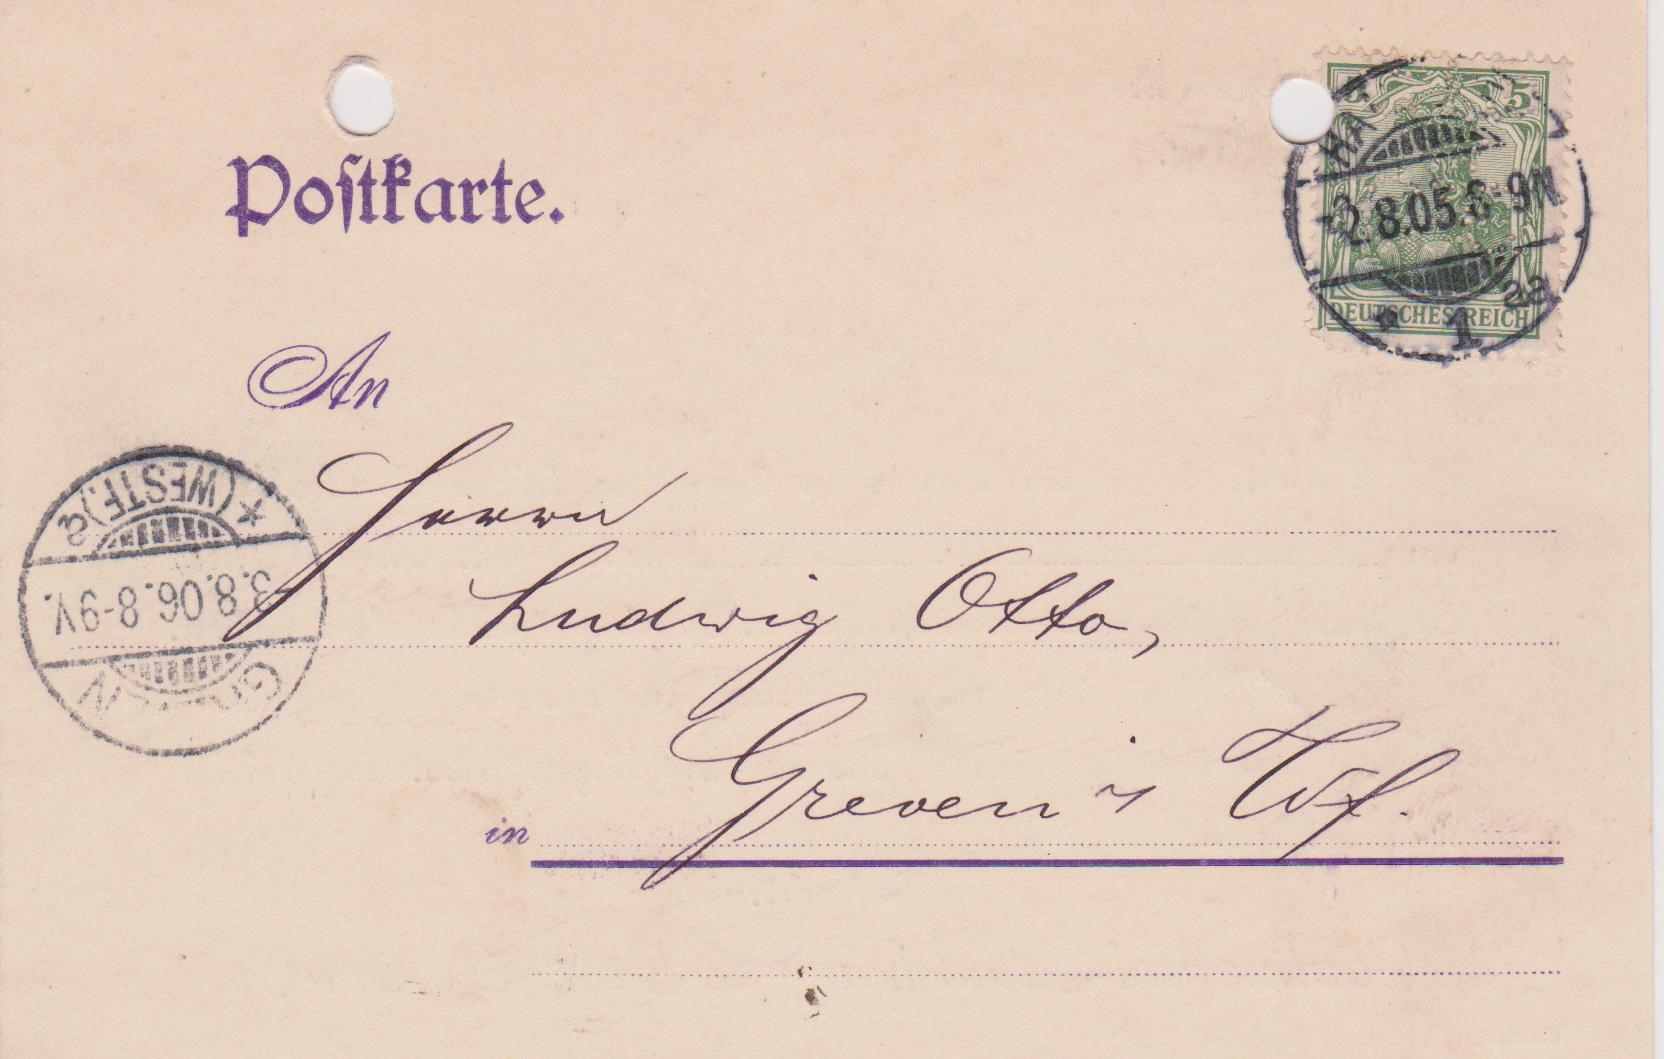 Postkarte.
5
2.8.05.8-9N
DEUTSCHES REICH
* 1 a
An
Herrn
Ludwig Otto,
in Greven i/ Wf.
GREVEN
3.8.06.8-9V.
* (WESTF.)